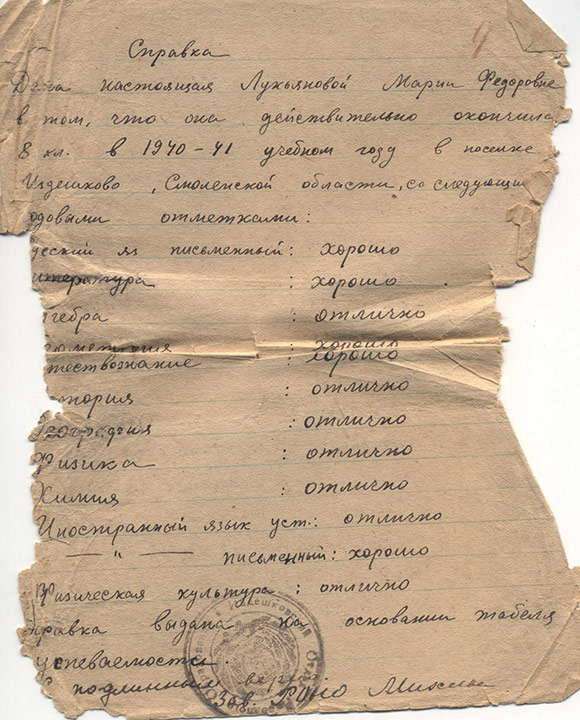 4
Справка
Дана настоящая Лукьяновой Марии Федоровне
в том, что она действительно окончила
8 кл. в 1940-41 учебном году в поселке
Издешково, Смоленской области, со следующи
одовыми отметками:
усский яз письменный: хорошо
итература : хорошо
лгебра : отлично
еометрия : хорошо
тествознание : хорошо
тория : отлично
География : отлично
Физика : отлично
Химия : отлично
Иностранный язык уст.: отлично
— " — письменный: хорошо
Физическая культура : отлично
правка выдана на основании табеля
успеваемости.
С подлинным верно
Зав. РОНО